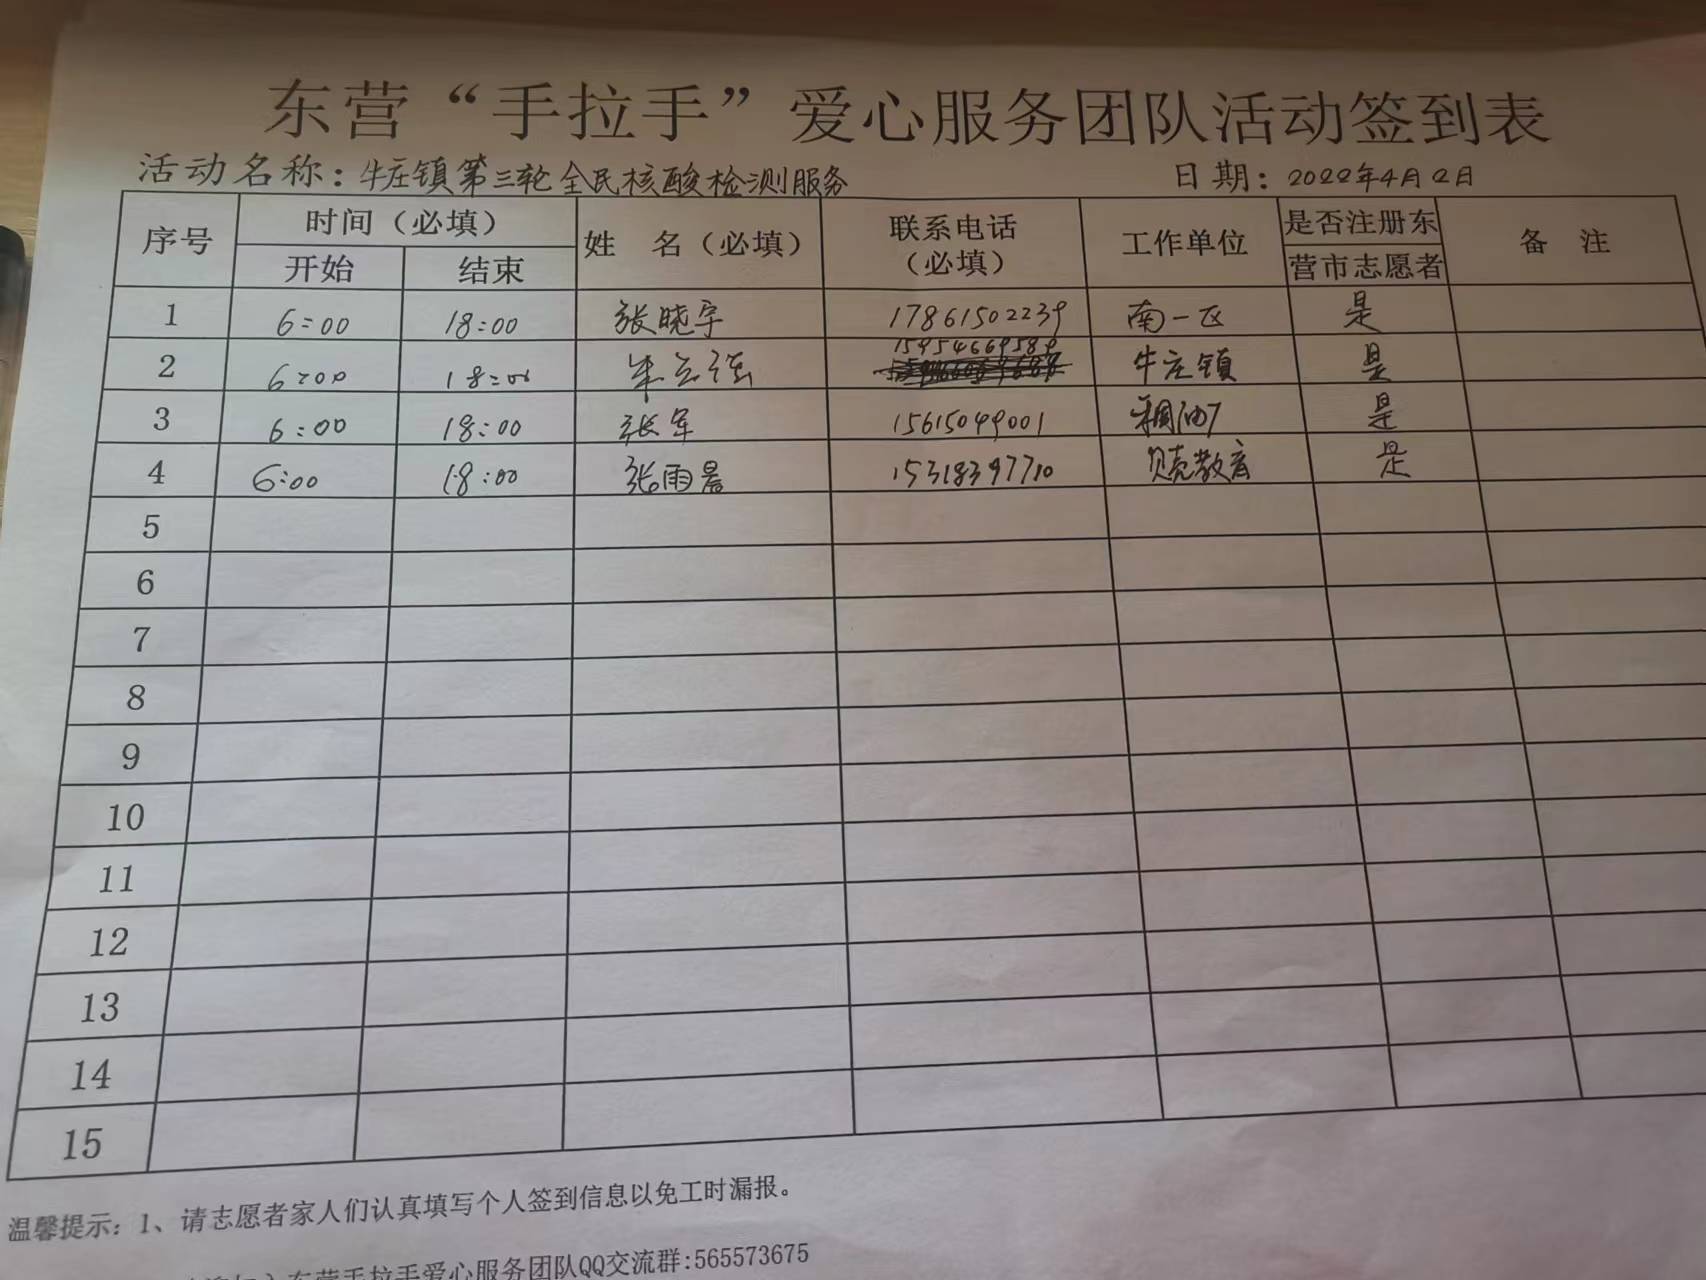 东营“手拉手”爱心服务团队活动签到表
活动名称：牛庄镇第三轮全民核酸检测服务 日期：2022年4月2日
序号 时间（必填） 姓 名（必填） 联系电话（必填） 工作单位 是否注册东营市志愿者 备 注
开始 结束
1 6:00 18:00 张晓宇 17861502239 南一区 是
2 6:00 18:00 15954669589 牛庄镇 是
3 6:00 18:00 张军 15615049001 稠油厂 是
4 6:00 18:00 张雨晨 15318397710 贝壳教育 是
5
6
7
8
9
10
11
12
13
14
15
温馨提示：1、请志愿者家人们认真填写个人签到信息以免工时漏报。
东营手拉手爱心服务团队QQ交流群:565573675